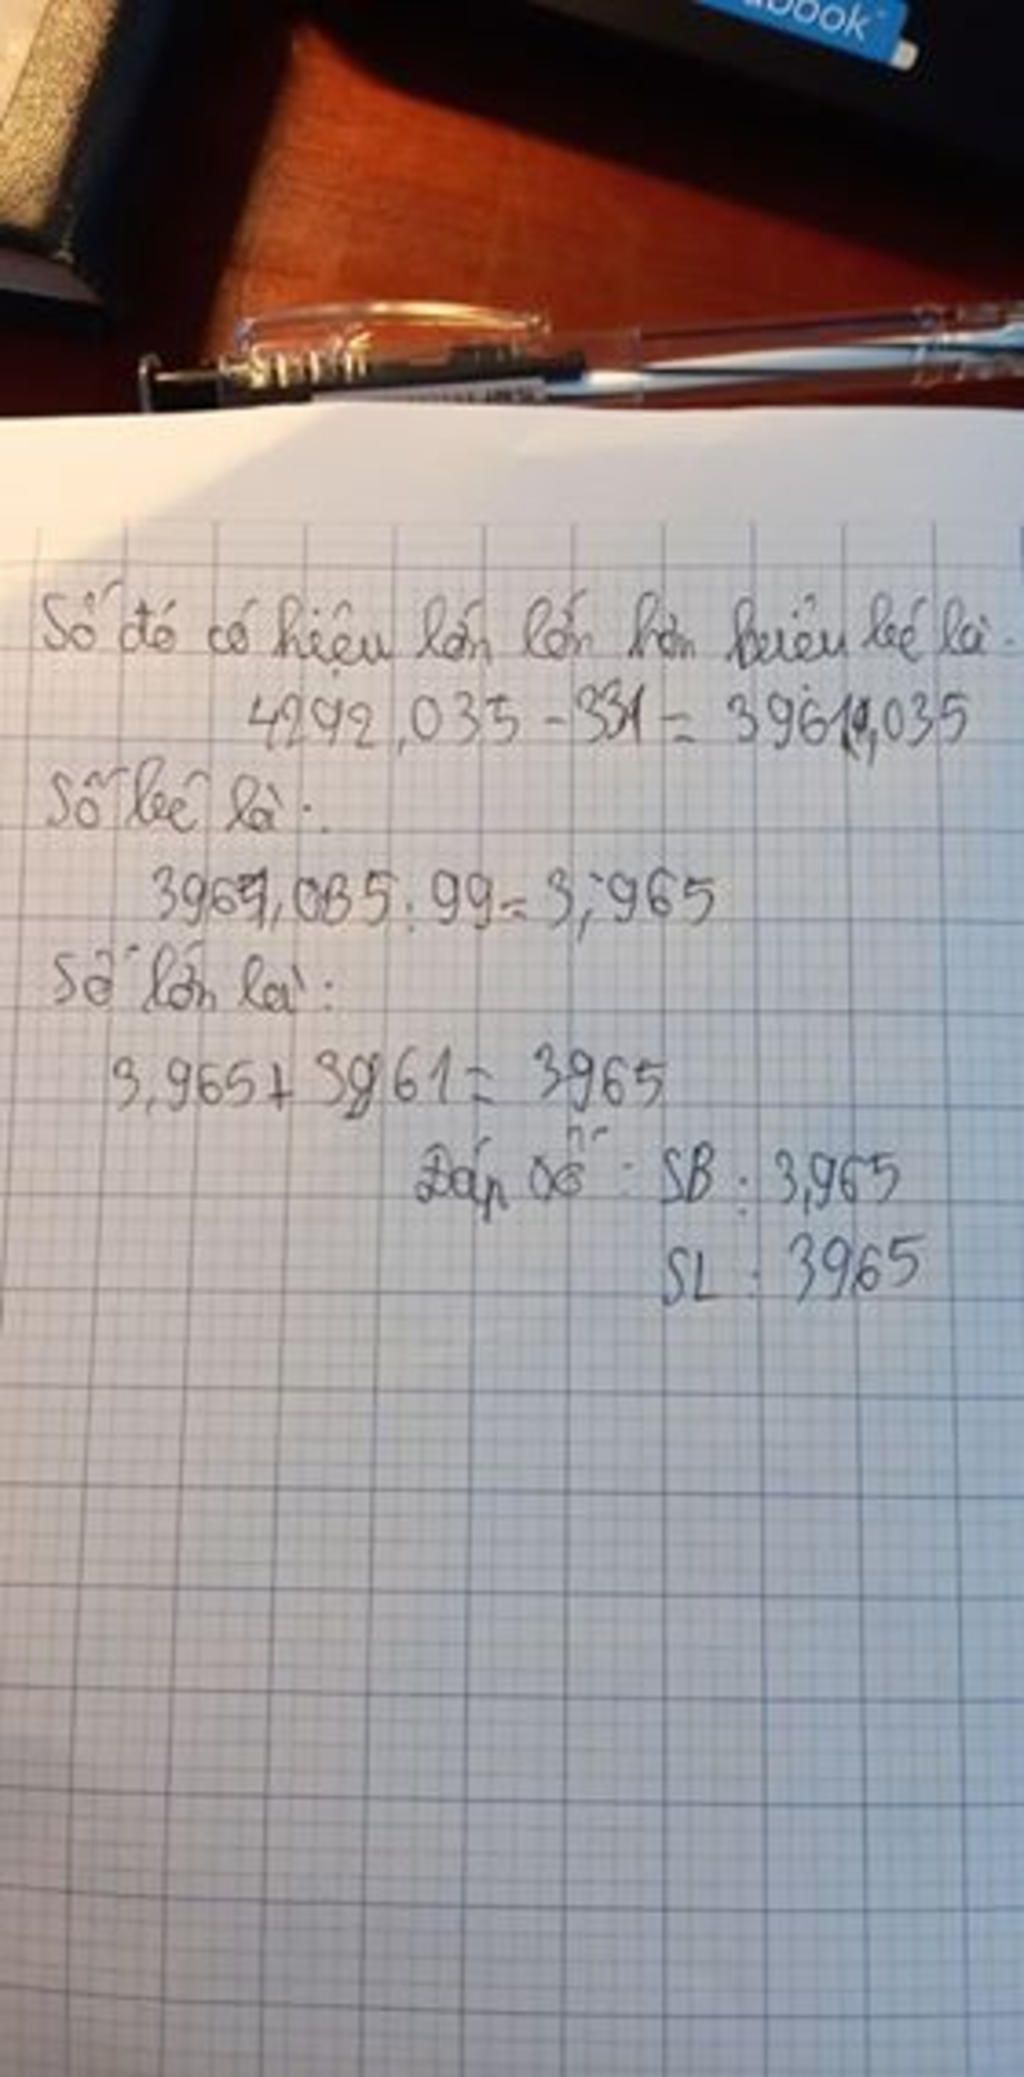 book
Số đó có hiệu lớn lớn hơn hiệu bé là.
4292,035 - 331 = 3961,035
Số bé là:
3961,035 : 99 = 3,965
Số lớn là:
3,965 + 3961 = 3965
Đáp số : SB : 3,965
SL : 3965